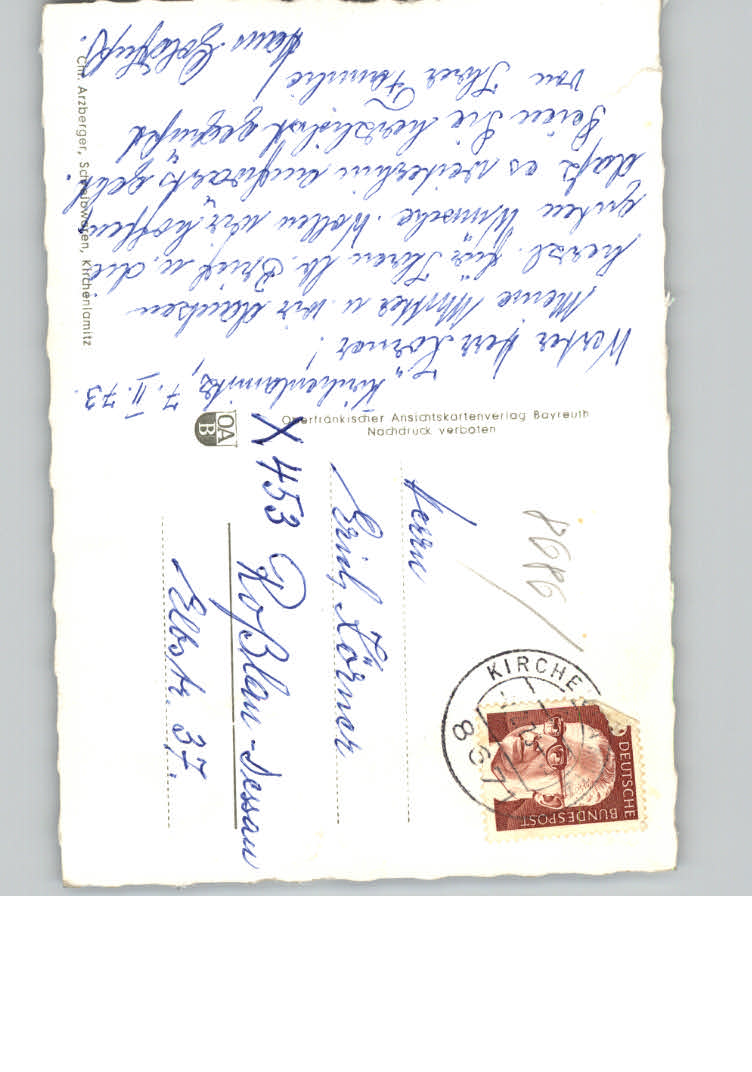 "Kirchenlamitz, 7. II. 73.
Werter Herr Körner!
Meine Mutter u. wir danken
herzl. für Ihren lb. Brief u. die
guten Wünsche. Wollen wir hoffen
daß es weiterhin aufwärts geht.
Seien Sie herzlichst gegrüßt
von Ihrer Familie
Hans
Chr. Arzberger, Schreibwaren, Kirchenlamitz
Oberfränkischer Ansichtskartenverlag Bayreuth
Nachdruck verboten
OA
B
8686
KIRCHE
867
DEUTSCHE
BUNDESPOST
Herrn
Erich Körner
X 453 Roßlau-Dessau
Elbstr. 37.